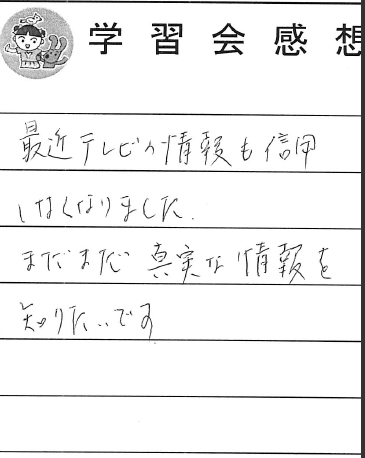 学習会感想
最近テレビの情報も信用
しなくなりました.
まだまだ 真実な情報を
知りたいです